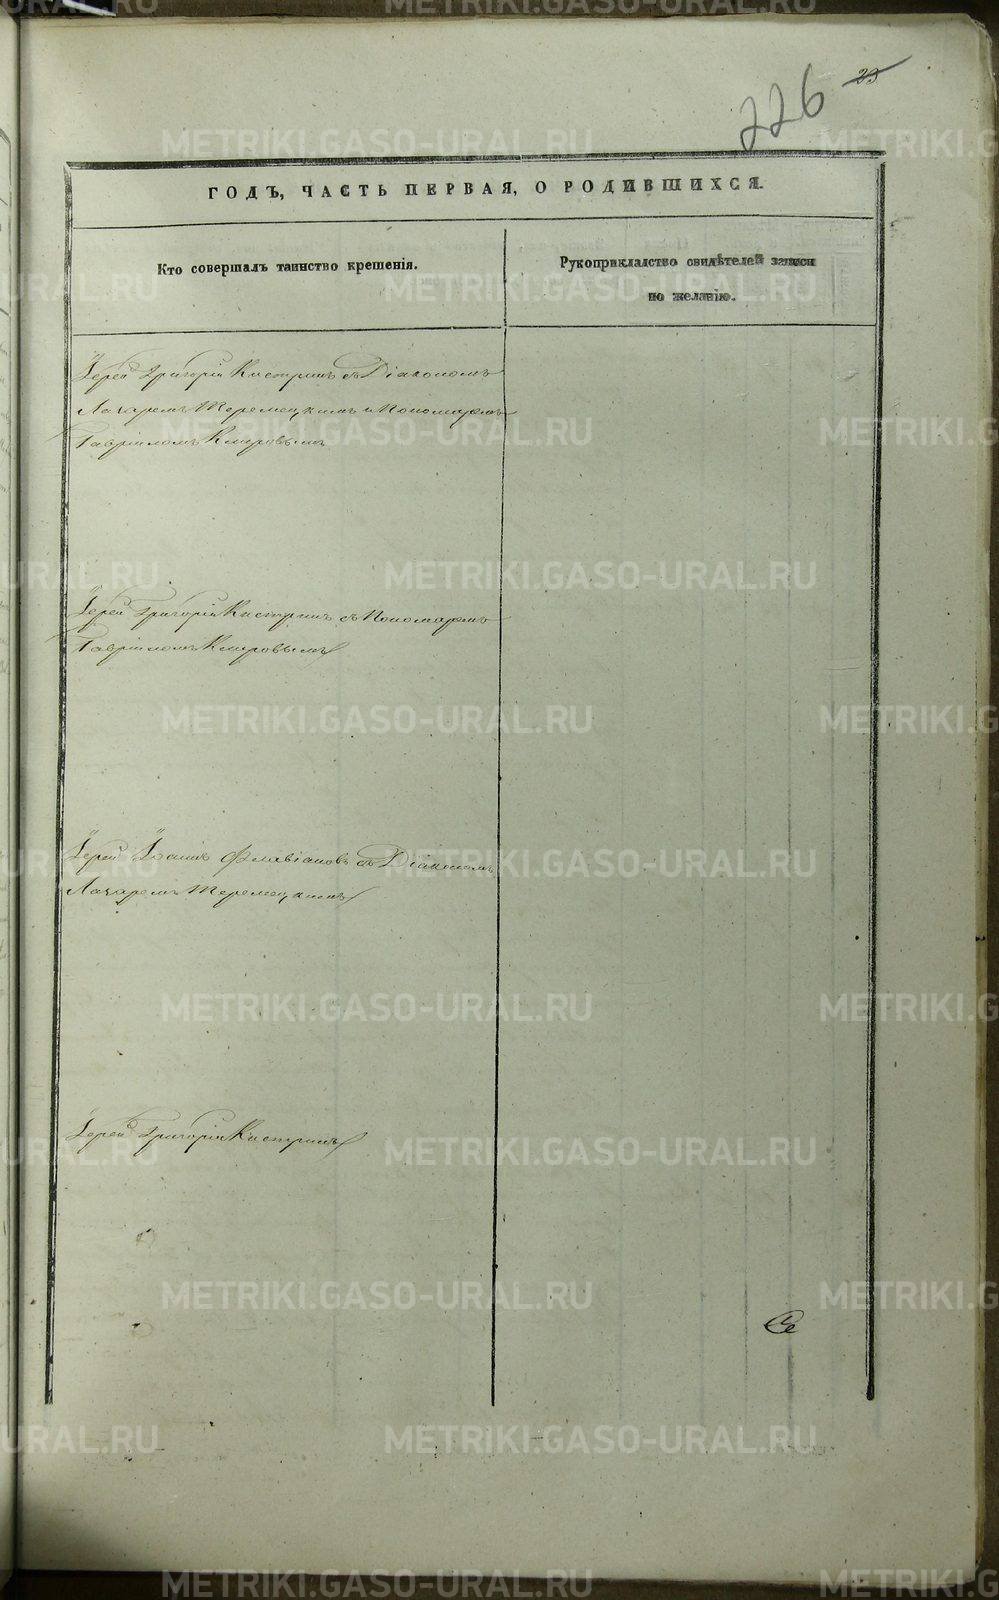 226 23
ГОДЪ, ЧАСТЬ ПЕРВАЯ, О РОДИВШИХСЯ.
Кто совершалъ таинство крещенія.
Рукоприкладство свидѣтелей записи
по желанію.
Іерей Григорій Кистринъ съ Діакономъ
Лазаремъ Теремецкимъ и Пономаремъ
Гавріиломъ Кыровымъ
Іерей Григорій Кистринъ съ Пономаремъ
Гавріиломъ Кыровымъ
Іерей Іоаннъ Флавіановъ съ Діакономъ
Лазаремъ Теремецкимъ
Іерей Григорій Кистринъ
METRIKI.GASO-URAL.RU